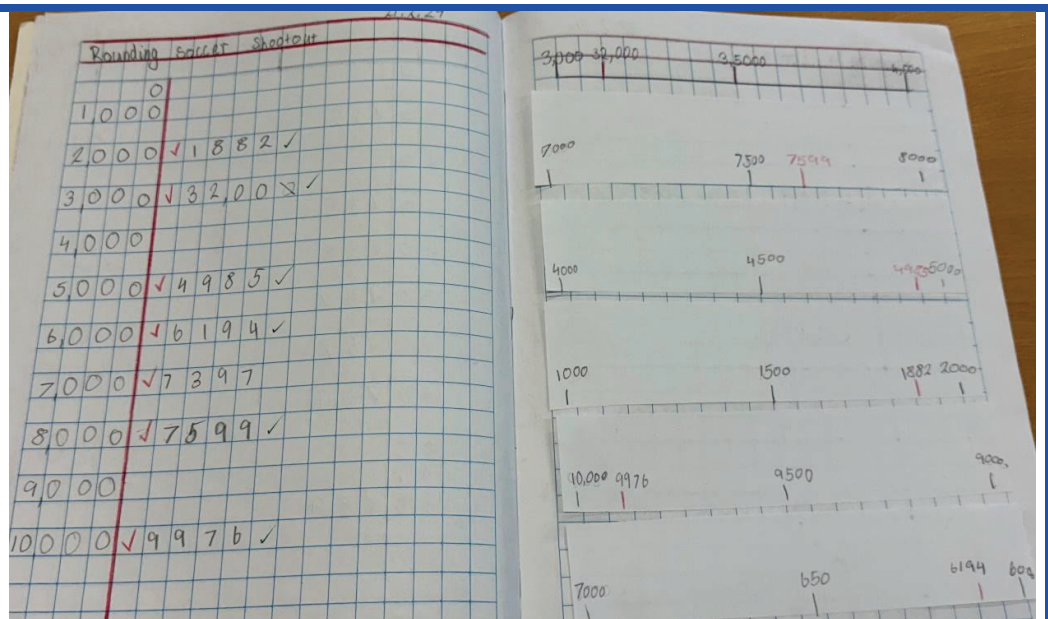 Rounding soccer Shootout
0
1,000
2,000 ✓ 1882 ✓
3,000 ✓ 32,00 ✓
4,000
5,000 ✓ 4985 ✓
6,000 ✓ 6194 ✓
7,000 ✓ 7397
8,000 ✓ 7599 ✓
9,000
10000 ✓ 9976 ✓
3,000 32,000 3,5000
7000 7500 7599 8000
4000 4500 4985 5000
1000 1500 1882 2000
10,000 9976 9500 9000
7000 650 6194